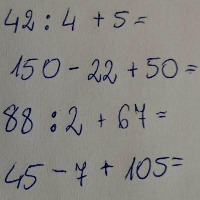 42 : 4 + 5 =
150 - 22 + 50 =
88 : 2 + 67 =
45 - 7 + 105 =